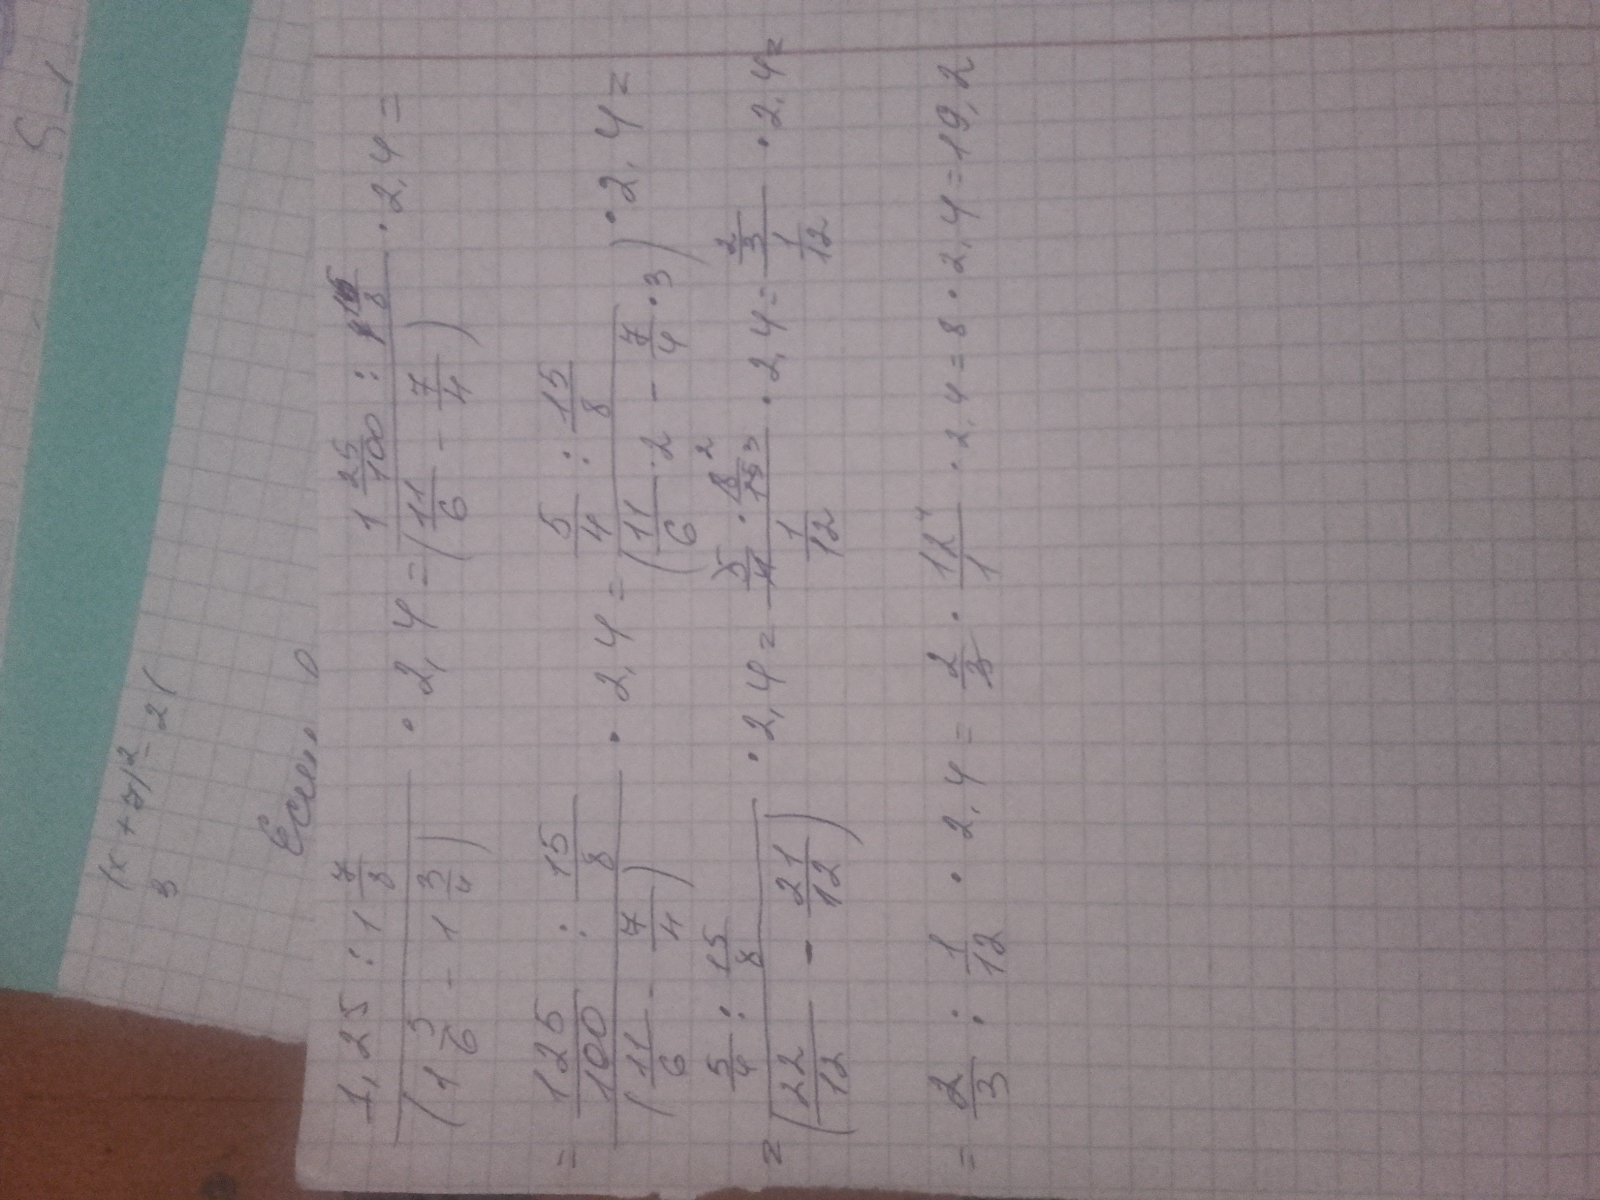 (x+7)² = 21
3
Если
1,25 : 1 7/8 / (1 5/6 - 1 3/4) · 2,4 = 1 25/100 : 15/8 / (11/6 - 7/4) · 2,4 =
= 125/100 : 15/8 / (11/6 - 7/4) · 2,4 = 5/4 : 15/8 / (11/6 · 2 - 7/4 · 3) · 2,4 =
= 5/4 : 15/8 / (22/12 - 21/12) · 2,4 = 5/4 · 8 2/15 3 / 1/12 · 2,4 = 2/3 / 1/12 · 2,4 =
= 2/3 : 1/12 · 2,4 = 2/3 · 12 4/1 · 2,4 = 8 · 2,4 = 19,2